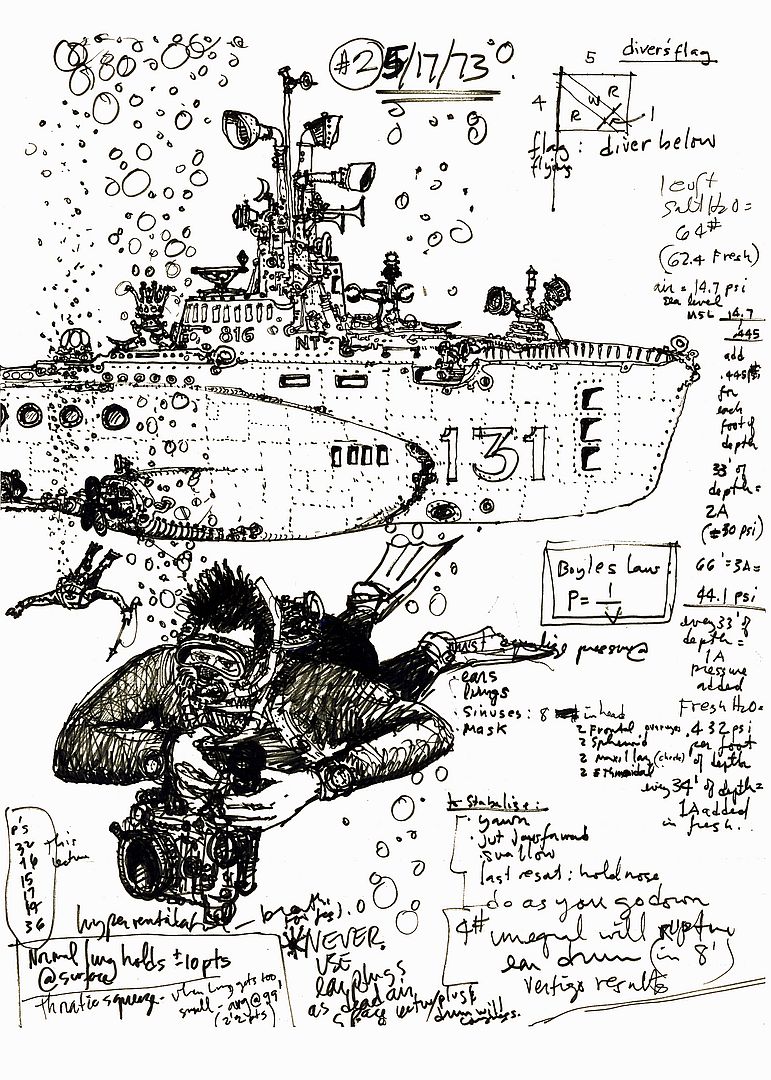 #2 5/17/73
5 diver's flag
4
R
W
R
R
1
flag : diver below
flying
1 cuft
salt H2O =
64#
(62.4 Fresh)
air = 14.7 psi
sea level
MSL 14.7
.445
add
.445#
for
each
foot of
depth
33' of
depth =
2A
(±30 psi)
66' = 3A =
44.1 psi
every 33' of
depth =
1A
pressure
added
Fresh H2O =
.432 psi
per foot
of depth
every 34' of depth =
1A added
in fresh.
816
NT
131
Boyles Law
P = 1/V
must equalize pressure @
ears
lungs
sinuses : 8 in head
mask
2 Frontal
2 Sphenoid
2 maxillary (cheek)
2 ethmoidal
to stabilize :
yawn
jut jaw forward
swallow
last resort : hold nose
do as you go down
4# unequal will rupture
ear drum (in 8')
vertigo results
p's
32
16
15
17
19
36
this
lecture
hyperventilate
Normal lung holds ±10 pts
@ surface
Thoracic squeeze - when lung gets too
small - avg @ 99'
(2 1/2 pts)
*NEVER
USE
earplugs
as dead air
space
drum will